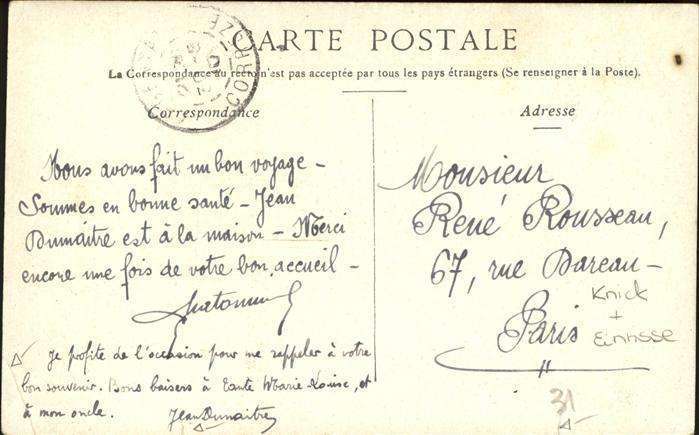 CARTE POSTALE
La Correspondance au recto n'est pas acceptée par tous les pays étrangers (Se renseigner à la Poste).
Correspondance
Nous avons fait un bon voyage –
Sommes en bonne santé – Jean
Dumaitre est à la maison – Merci
encore une fois de votre bon accueil –
Je profite de l'occasion pour me rappeler à votre
bon souvenir. Bons baisers à Tante Marie Louise, et
à mon oncle.
Jean Dumaitre
Adresse
Monsieur
René Rousseau,
67, rue Dareau –
Paris
Knick
+
Einrisse
31
CORREZE